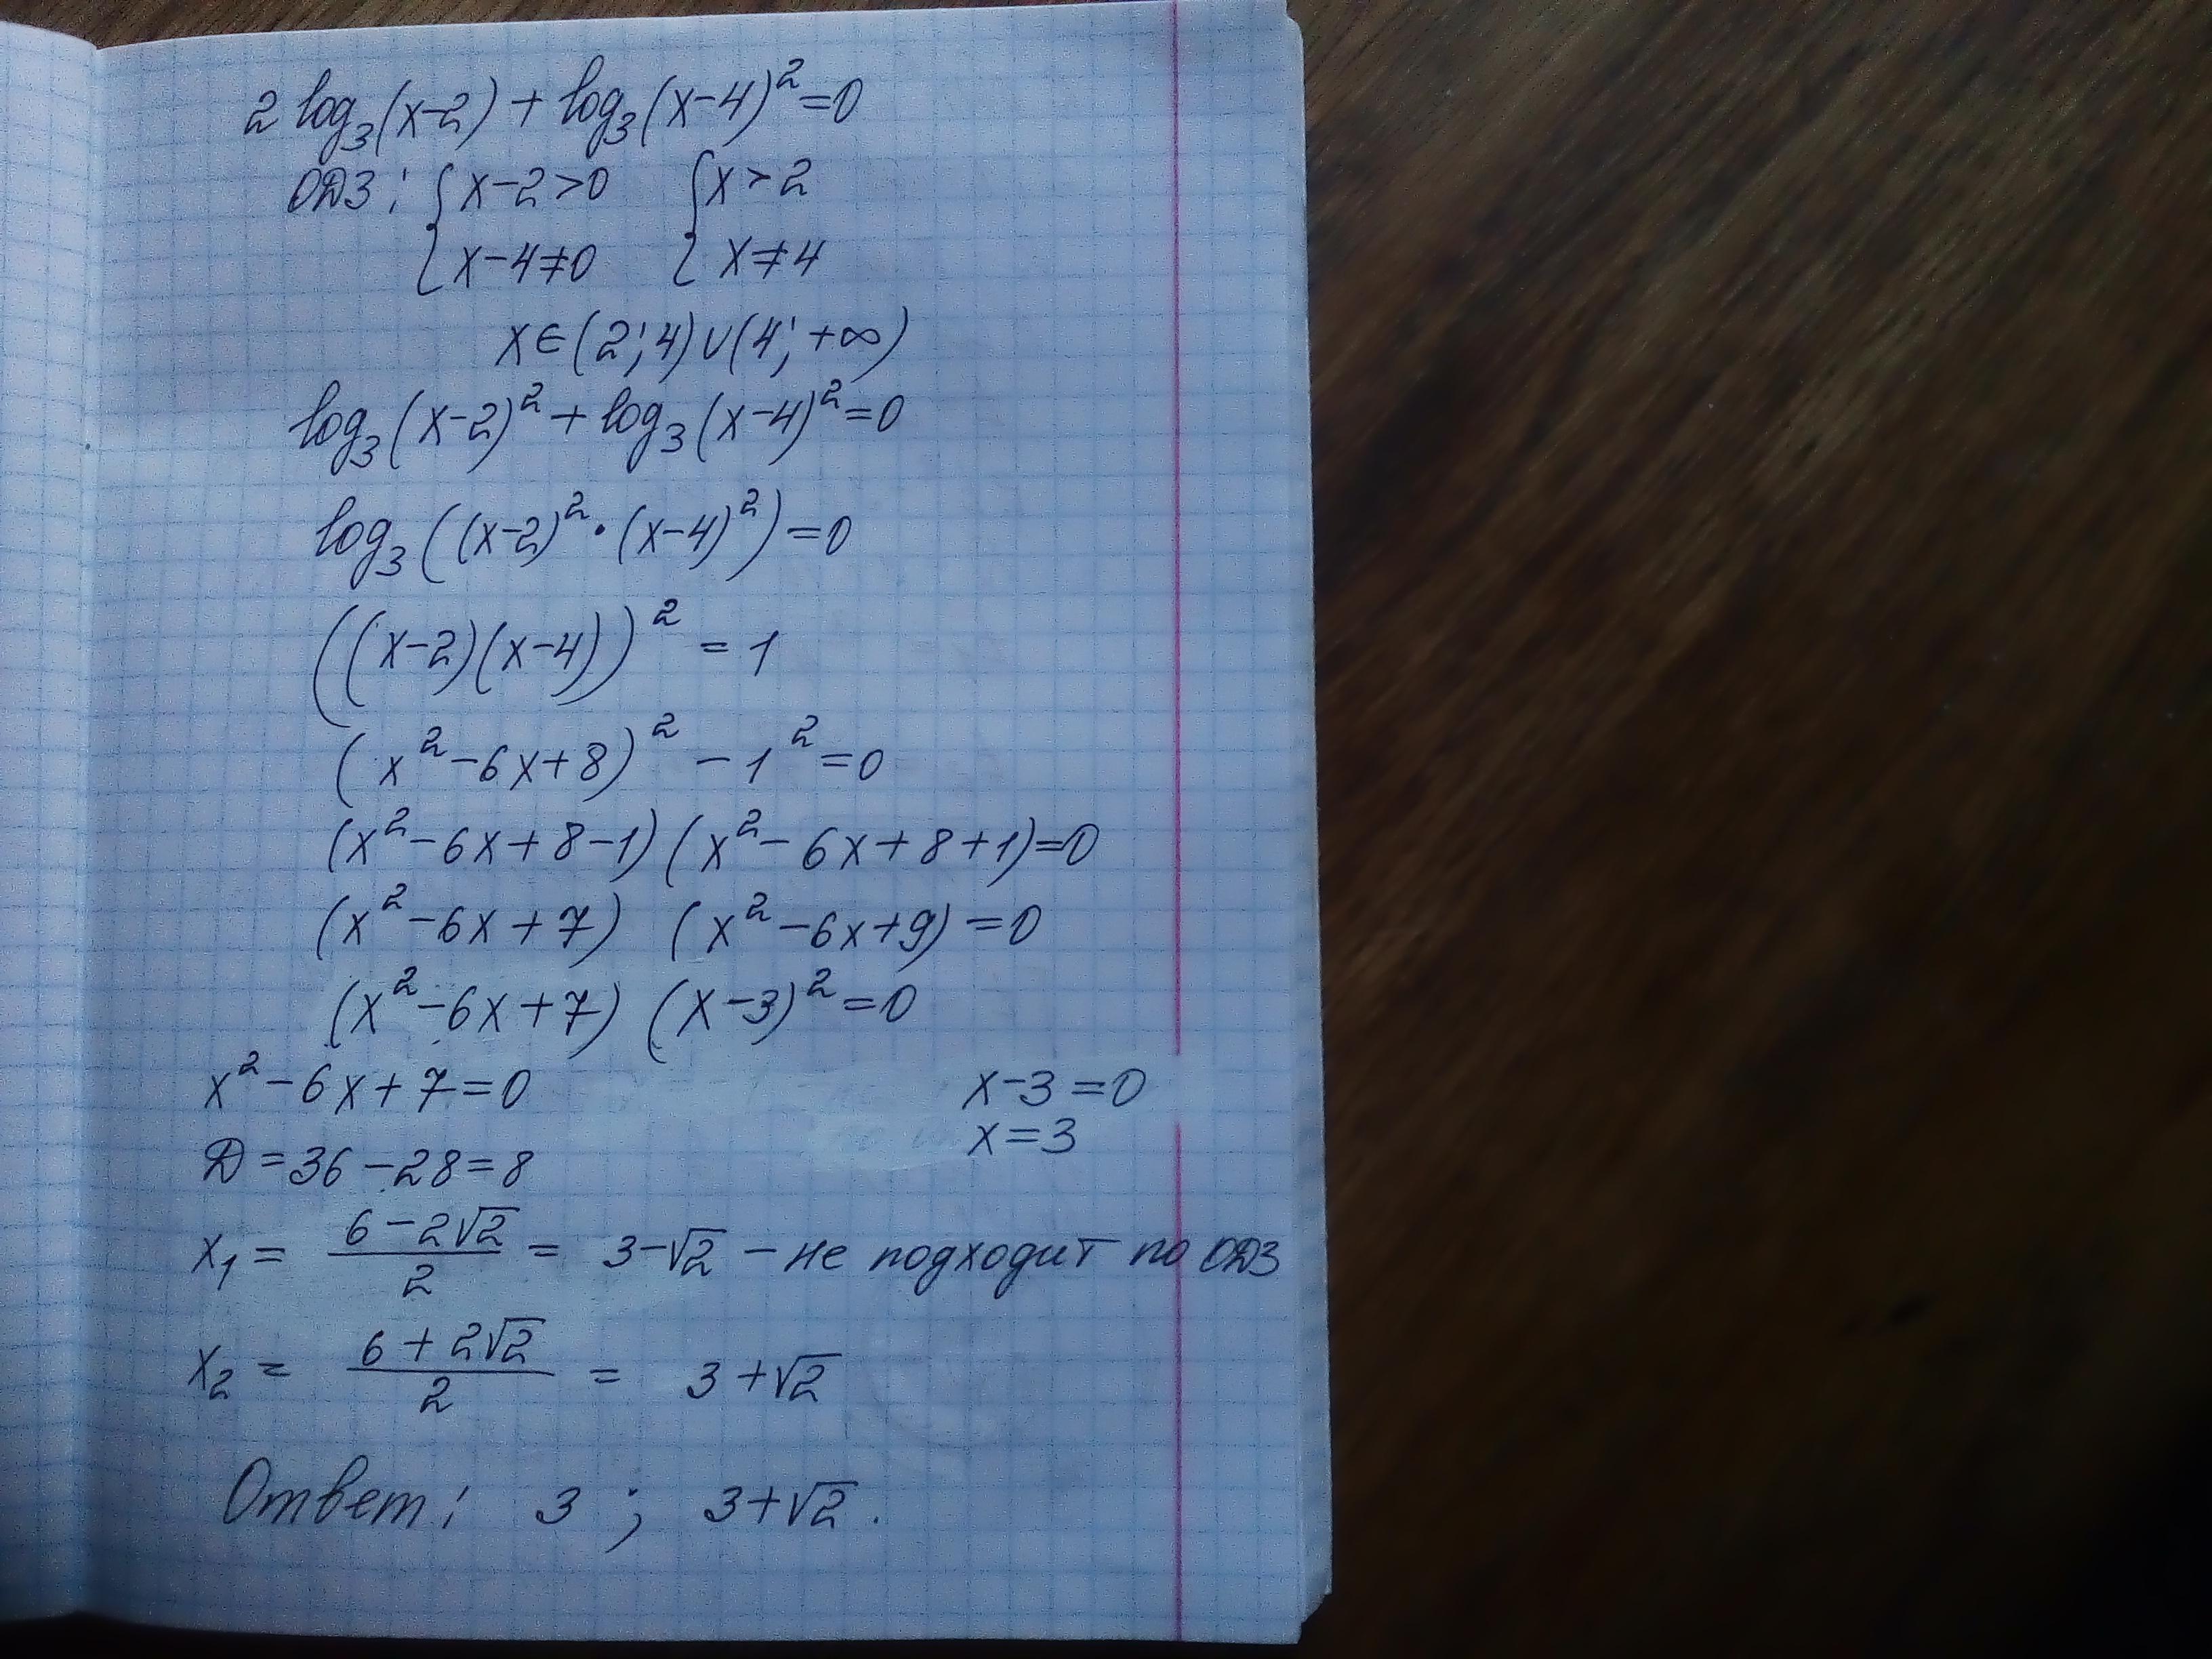 2 log₃(x-2) + log₃(x-4)² = 0
ОДЗ: { x-2>0 { x>2
{ x-4≠0 { x≠4
x∈(2;4)∪(4;+∞)
log₃(x-2)² + log₃(x-4)² = 0
log₃((x-2)²·(x-4)²) = 0
((x-2)(x-4))² = 1
(x²-6x+8)² - 1² = 0
(x²-6x+8-1)(x²-6x+8+1)=0
(x²-6x+7) (x²-6x+9)=0
(x²-6x+7) (x-3)²=0
x²-6x+7=0 x-3=0
x=3
D=36-28=8
x₁ = (6-2√2)/2 = 3-√2 - не подходит по ОДЗ
x₂ = (6+2√2)/2 = 3+√2
Ответ: 3; 3+√2.